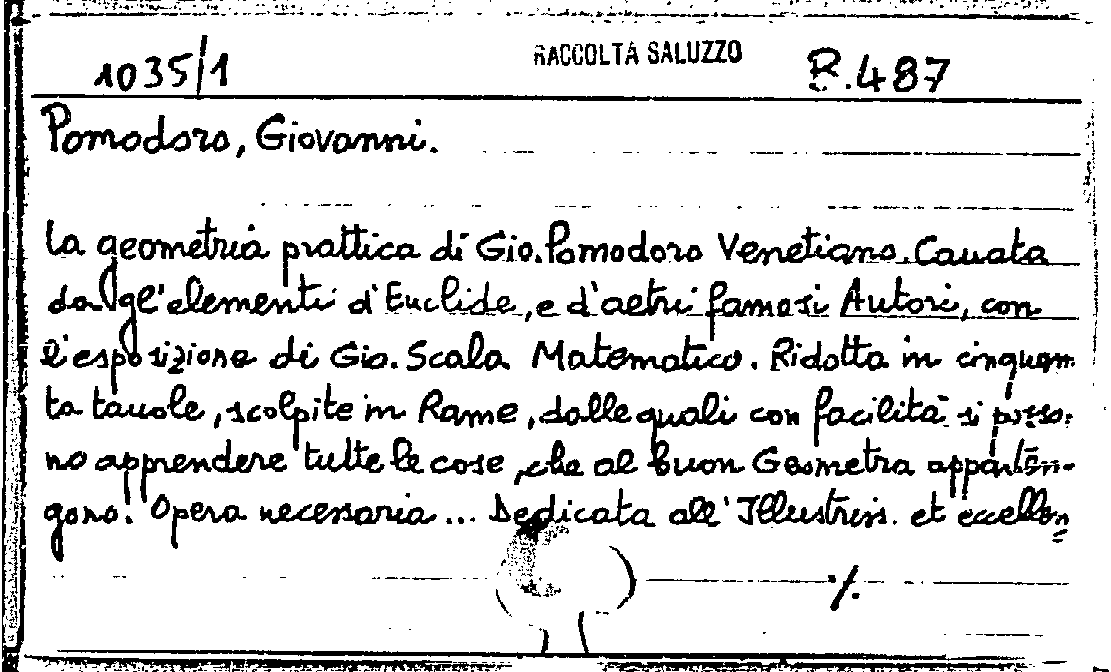 1035/1 RACCOLTA SALUZZO B.487
Pomodoro, Giovanni.
La geometria prattica di Gio. Pomodoro Venetiano. Cauata
dagl'elementi d'Euclide, e d'altri famosi Autori, con
l'esposizione di Gio. Scala Matematico. Ridotta in cinquan
ta tauole, scolpite in Rame, dalle quali con facilità si posso-
no apprendere tutte le cose, che al buon Geometra apparten-
gono. Opera necessaria... Dedicata all'Illustriss. et eccellen=
./.